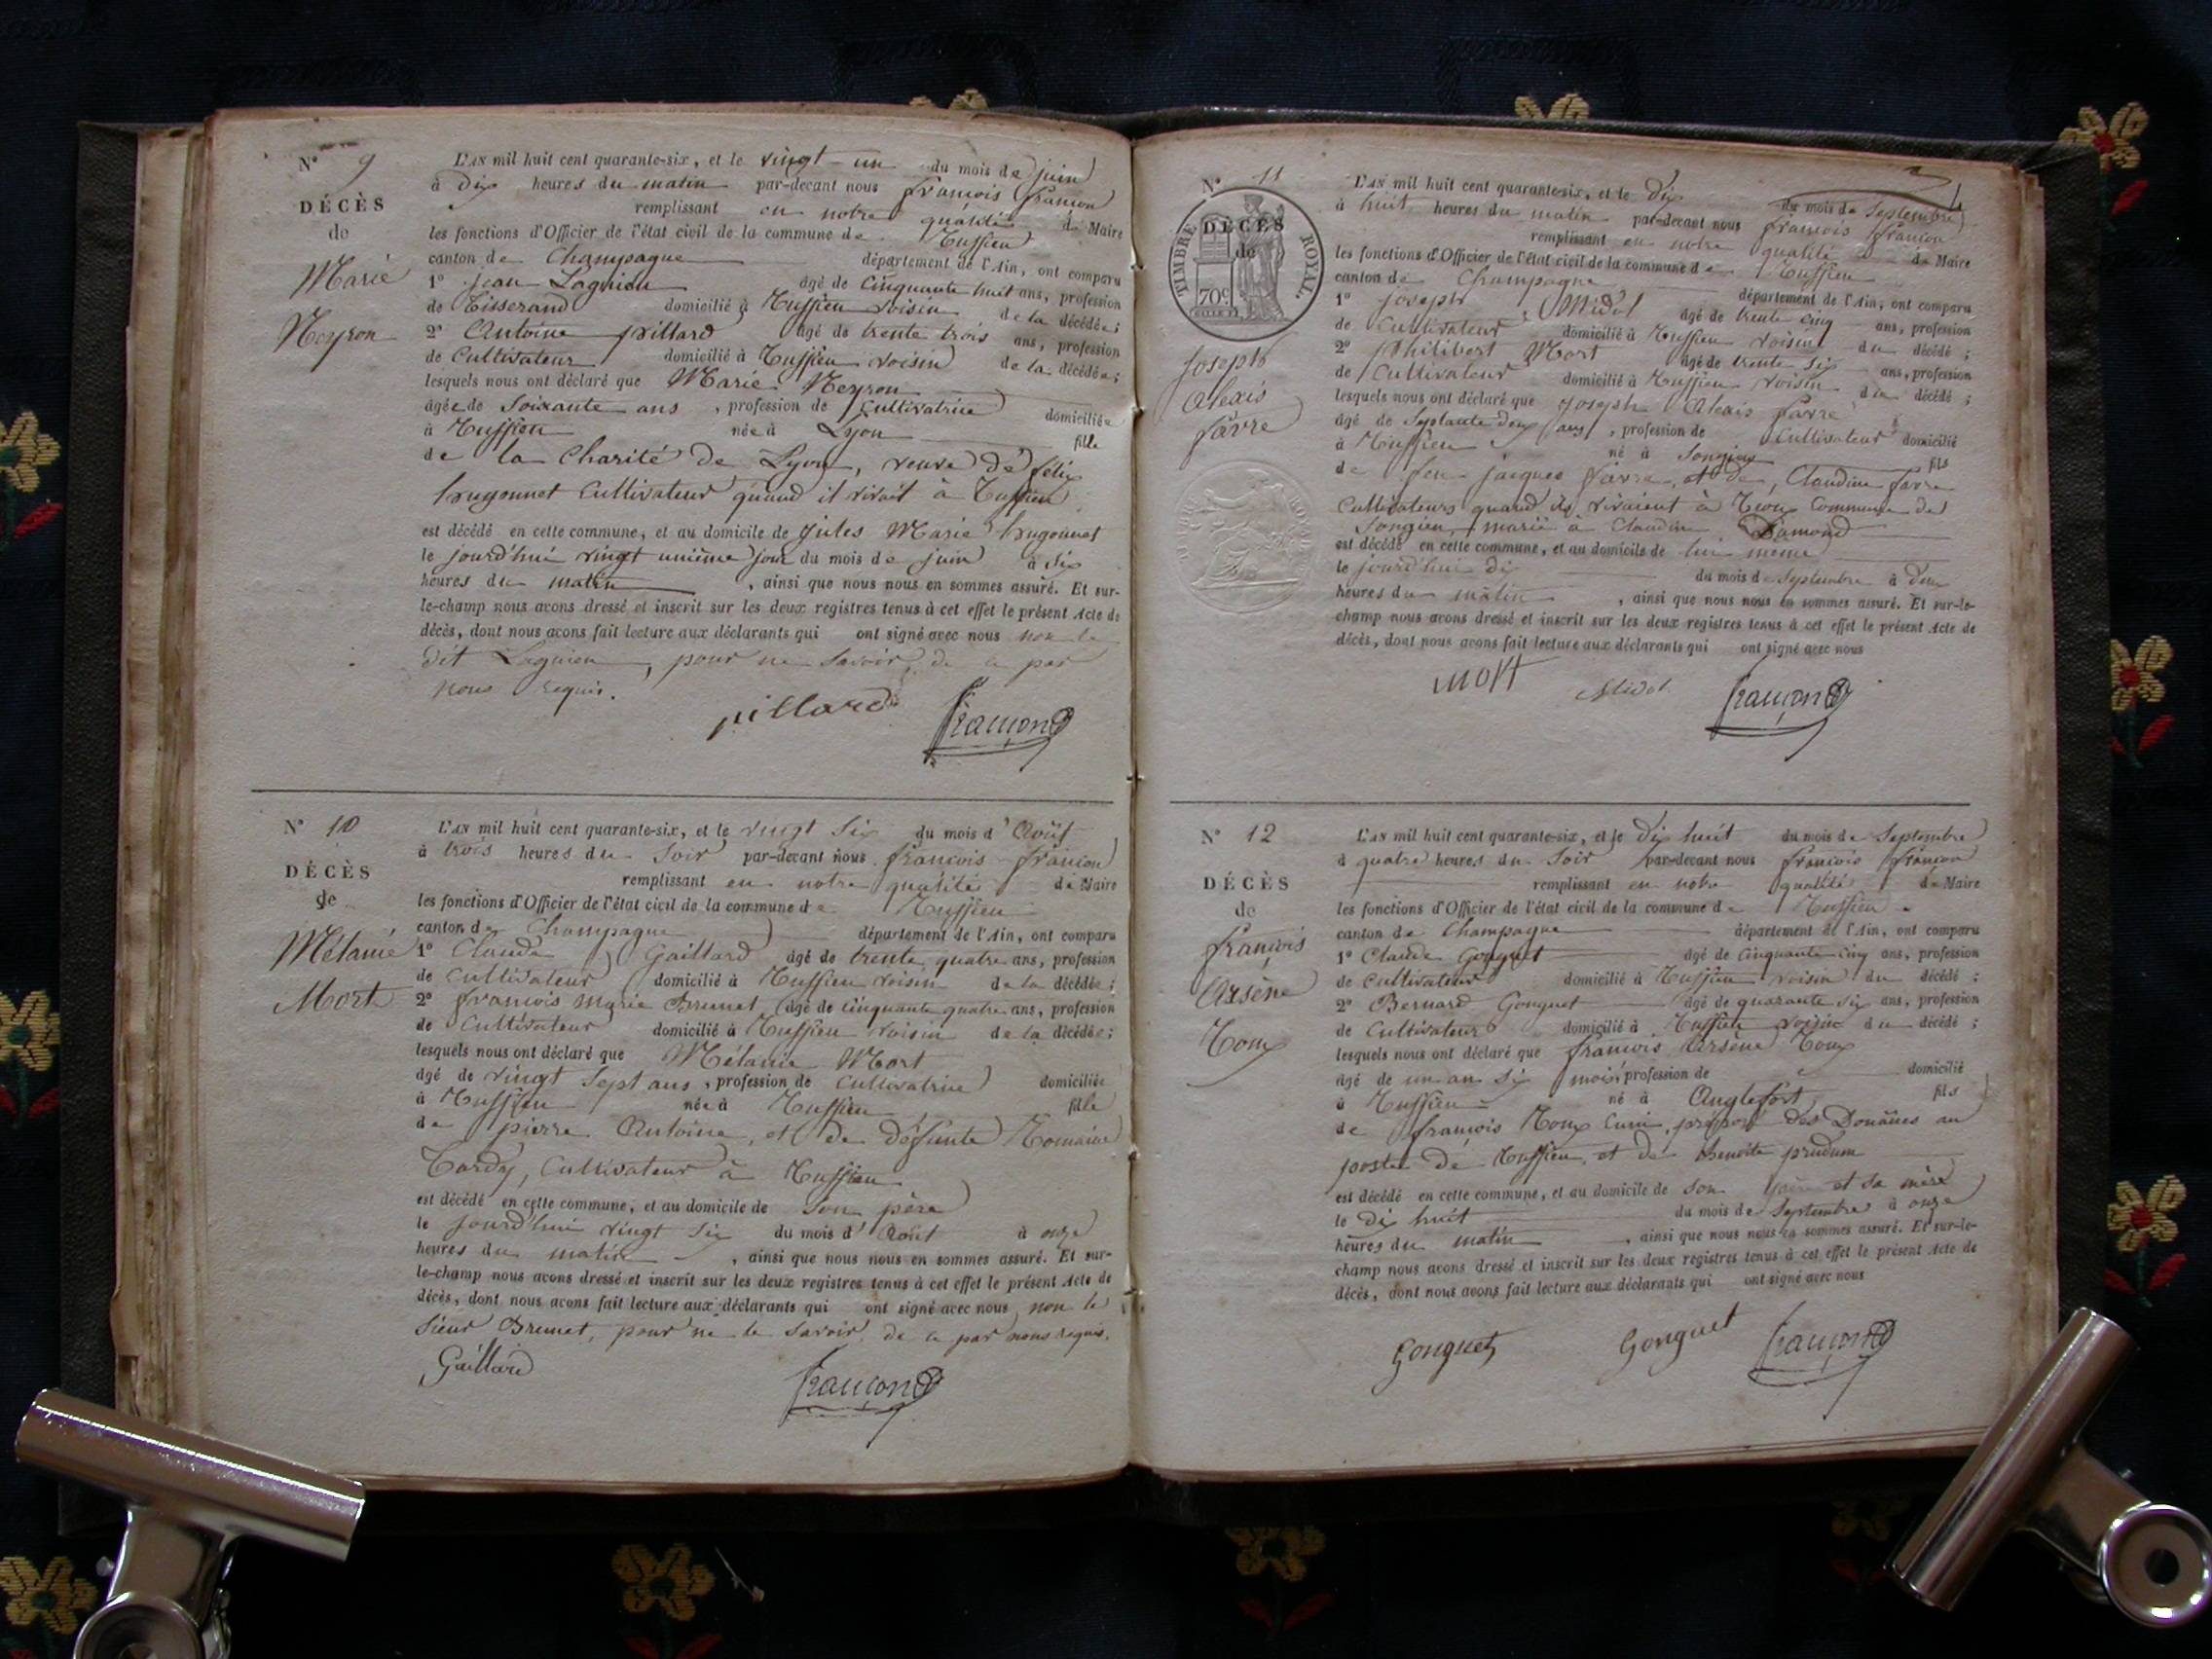 N° 9
DÉCÈS
de
Marie
Neyron
L'AN mil huit cent quarante-six, et le vingt-un du mois de juin
à dix heures du matin par-devant nous françois françon
remplissant en notre qualité de Maire
les fonctions d'Officier de l'état civil de la commune de Ruffieu
canton de Champagne département de l'Ain, ont comparu
1° jean Lagnieu âgé de cinquante huit ans, profession
de Tisserand domicilié à Ruffieu voisin de la décédée;
2° Antoine pillard âgé de trente trois ans, profession
de Cultivateur domicilié à Ruffieu voisin de la décédée;
lesquels nous ont déclaré que Marie Neyron
âgée de Soixante ans, profession de Cultivatrice domiciliée
à Ruffieu née à Lyon fille
de la Charité de Lyon, veuve de félix
hugonnet Cultivateur quand il vivait à Ruffieu
est décédé en cette commune, et au domicile de jules Marie hugonnet
le jourd'hui vingt unième jour du mois de juin à six
heures du matin, ainsi que nous nous en sommes assuré. Et sur-
le-champ nous avons dressé et inscrit sur les deux registres tenus à cet effet le présent Acte de
décès, dont nous avons fait lecture aux déclarants qui ont signé avec nous non le
dit Lagnieu, pour ne savoir, de ce par
nous requis.
pillard françon
N° 10
DÉCÈS
de
Mélanie
Mort
L'AN mil huit cent quarante-six, et le vingt Six du mois d'Août
à trois heures du Soir par-devant nous françois françon
remplissant en notre qualité de Maire
les fonctions d'Officier de l'état civil de la commune de Ruffieu
canton de Champagne département de l'Ain, ont comparu
1° Claude Gaillard âgé de trente quatre ans, profession
de Cultivateur domicilié à Ruffieu voisin de la décédée;
2° françois Marie Brunet âgé de cinquante quatre ans, profession
de Cultivateur domicilié à Ruffieu voisin de la décédée;
lesquels nous ont déclaré que Mélanie Mort
âgé de vingt Sept ans, profession de Cultivatrice domiciliée
à Ruffieu née à Ruffieu fille
de pierre Antoine, et de défunte Romaine
Tardy, Cultivateur à Ruffieu
est décédé en cette commune, et au domicile de Son père
le jourd'hui vingt Six du mois d'Août à onze
heures du matin, ainsi que nous nous en sommes assuré. Et sur-
le-champ nous avons dressé et inscrit sur les deux registres tenus à cet effet le présent Acte de
décès, dont nous avons fait lecture aux déclarants qui ont signé avec nous non le
Sieur Brunet, pour ne le savoir, de ce par nous requis.
Gaillard françon
N° 11
TIMBRE ROYAL.
70c
DÉCÈS
de
Joseph
Alexis
favre
L'AN mil huit cent quarante-six, et le Dix du mois de Septembre
à huit heures du matin par-devant nous françois françon
remplissant en notre qualité de Maire
les fonctions d'Officier de l'état civil de la commune de Ruffieu
canton de Champagne département de l'Ain, ont comparu
1° joseph Midol âgé de trente cinq ans, profession
de Cultivateur domicilié à Ruffieu voisin du décédé;
2° Philibert Mort âgé de trente Six ans, profession
de Cultivateur domicilié à Ruffieu voisin du décédé;
lesquels nous ont déclaré que joseph Alexis favre
âgé de Septante deux ans, profession de Cultivateur domicilié
à Ruffieu né à Songieu fils
de feu jacques favre, et de, Claudine favre
Cultivateurs quand ils vivaient à Commune de
Songieu, marié à Claudine
est décédé en cette commune, et au domicile de lui même
le jourd'hui dix du mois de Septembre à Deux
heures du matin, ainsi que nous nous en sommes assuré. Et sur-le-
champ nous avons dressé et inscrit sur les deux registres tenus à cet effet le présent Acte de
décès, dont nous avons fait lecture aux déclarants qui ont signé avec nous
Mort Midol françon
N° 12
DÉCÈS
de
françois
Arsène
Roux
L'AN mil huit cent quarante-six, et le Dix huit du mois de Septembre
à quatre heures du Soir par-devant nous françois françon
remplissant en notre qualité de Maire
les fonctions d'Officier de l'état civil de la commune de Ruffieu
canton de Champagne département de l'Ain, ont comparu
1° Claude Gonguet âgé de cinquante cinq ans, profession
de Cultivateur domicilié à Ruffieu voisin du décédé;
2° Bernard Gonguet âgé de quarante six ans, profession
de Cultivateur domicilié à Ruffieu voisin du décédé;
lesquels nous ont déclaré que françois Arsène Roux
âgé de un an six mois, profession de domicilié
à Ruffieu né à Anglefort, fils
de françois Roux préposé des Douanes au
poste de Ruffieu, et de Benoîte prudum
est décédé en cette commune, et au domicile de Son père et sa mère
le Dix huit du mois de Septembre à onze
heures du matin, ainsi que nous nous en sommes assuré. Et sur-le-
champ nous avons dressé et inscrit sur les deux registres tenus à cet effet le présent Acte de
décès, dont nous avons fait lecture aux déclarants qui ont signé avec nous
Gonguet Gonguet françon